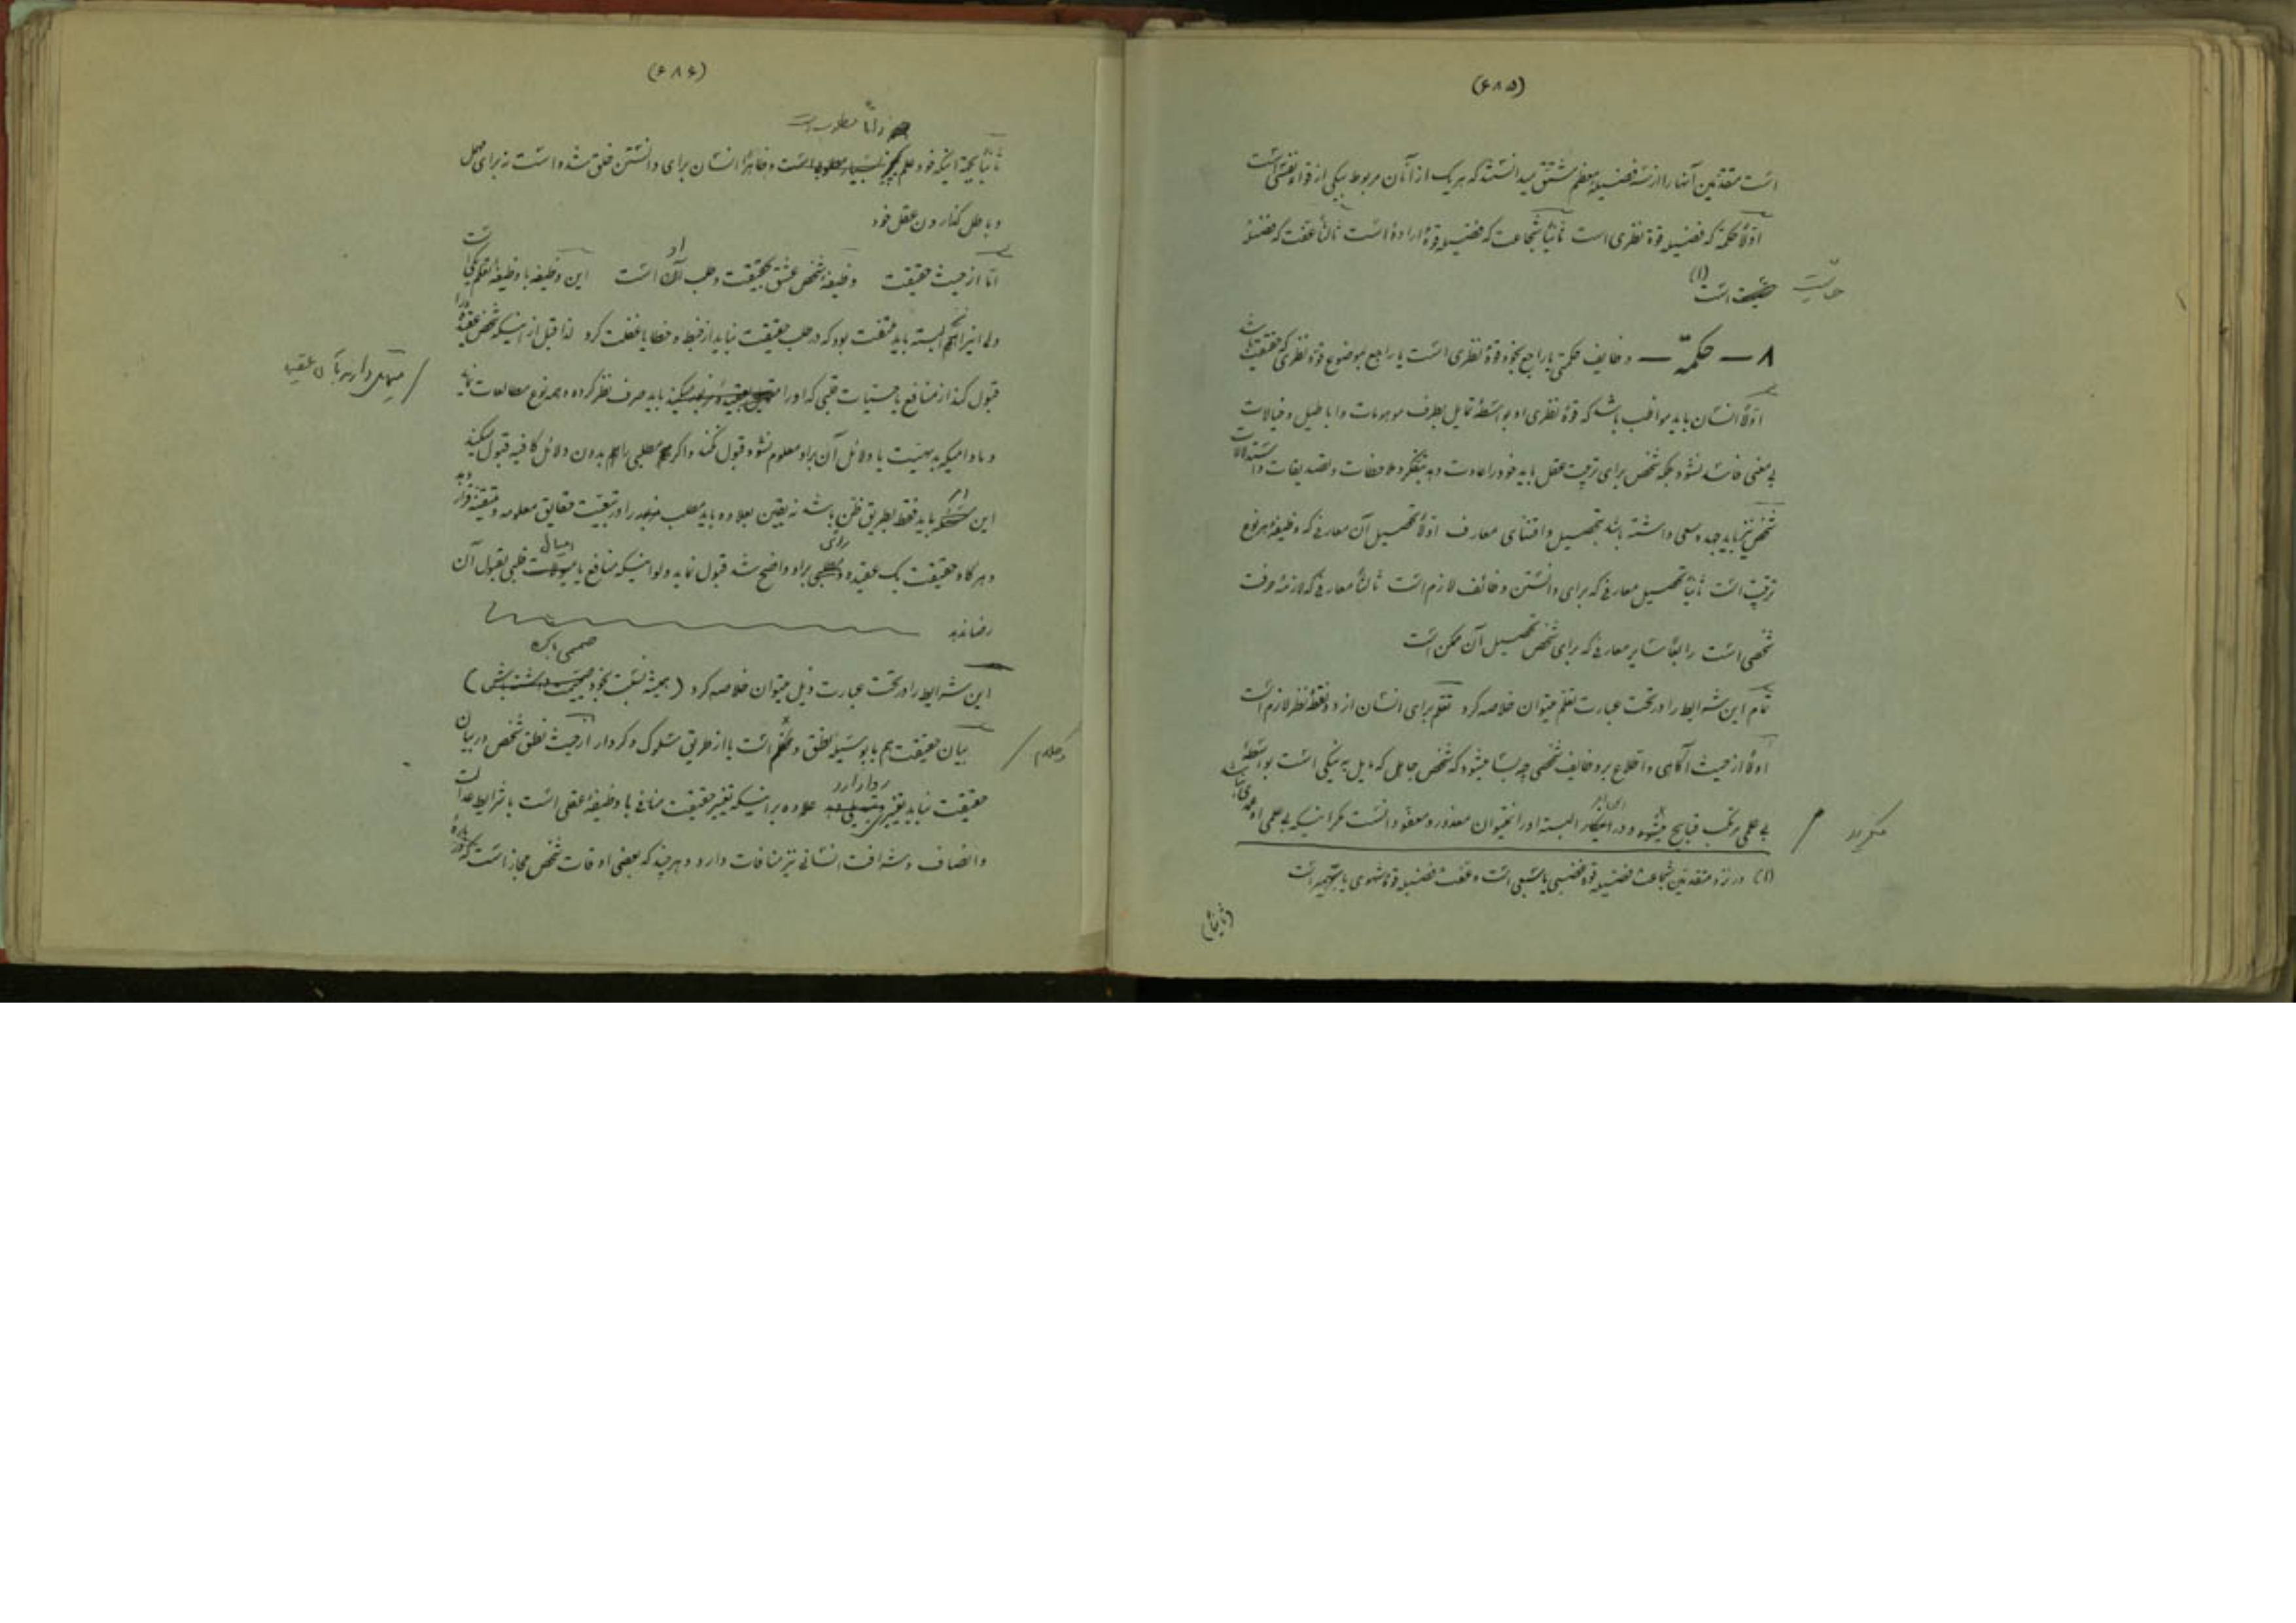 (۶۸۵)
است متقدمین آنها را از سه فضیلة معظم مشتق میدانستند که هر یک از آنان مربوط بیکی از قواء نفس است
اولاً حکمة که فضیلو قوة نظری است ثانیاً شجاعت که فضیلو قوة اراده است ثالثاً عفت که فضیلو
حساسیت است (۱)
۸ — حکمة — وظایف حکمتی یا راجع بخود قوة نظری است یا راجع بموضوع قوة نظری که حقیقت باشد
اولاً انسان باید مواظب باشد که قوة نظری او بواسطه تمایل بطرف موهومات و اباطیل و خیالات
بی معنی فاسد نشود بلکه شخص برای تربیت عقل باید خود را عادت دهد بتفکر و ملاحظات و تصدیقات و استدلالات
شخص نیز باید جهد و سعی داشته باشد بتحصیل و اقتنای معارف اولاً تحصیل آن معارفی که وظیفة هر نوع
تربیت است ثانیاً تحصیل معارفی که برای دانستن وظائف لازم است ثالثاً معارفی که لازمة حرفت
شخصی است رابعاً سایر معارفی که برای شخص تحصیل آن ممکن است
تمام این شرایط را در تحت عبارت تعلم میتوان خلاصه کرد تعلم برای انسان از دو نقطة نظر لازم است
اولاً از حیث آگاهی و اطلاع بر وظایف شخصی چه بسا میشود که شخص جاهل که مایل به نیکی است بواسطة
بی علمی مرتکب قبایح میگردد و در البته او را نمیتوان معذور و معفو دانست مگر اینکه بی علمی او عمدی نباشد
(۱) در نزد متقدمین شجاعت فضیلو قوة غضبی یا سبعی است و عفت فضیلو قوة شهوی یا بهیمی است
(ثانیاً)
(۶۸۶)
ثانیاً بجهة اینکه خود علم ذاتاً مطلوب است و ظاهراً انسان برای دانستن خلق شده است نه برای جهل
و باطل گذاردن عقل خود
اما از حیث حقیقت وظیفة شخص عشق بحقیقت و طلب آن است این وظیفه با وظیفة تعلم یکی است
ولی البته باید ملتفت بود که در طلب حقیقت نباید از خبط و خطایا غفلت کرد لذا قبل از اینکه شخص عقیدة را
قبول کند از منافع یا حسیات قلبی که او را متمایل دارند بآن عقیده باید صرف نظر کرده و همه نوع مطالعات نماید
و مادامیکه بدیهیت یا دلائل آن بر او معلوم نشود قبول نکند و اگر مطلبی را هم بدون دلائل کافیه قبول میکند
این امر باید فقط بطریق ظن باشد نه یقین بعلاوه باید مطلب را در تبعیت حقایق معلومه و متیقنه قرار دهد
و هر گاه حقیقت یک عقیده و رأی بر او واضح شد قبول نماید ولو اینکه منافع یا امیال قلبی بقبول آن
رضا ندهد
این شرایط را در تحت عبارت ذیل میتوان خلاصه کرد (همیشه نسبت بخود صمیمی باش)
بیان حقیقت هم یا بوسیلو نطق و کلام است یا از طریق سلوک و کردار از حیث نطق شخص در بیان
حقیقت نباید تغییری روا دارد علاوه بر اینکه تغییر حقیقت منافی با وظیفة عقلی است با شرایط عدالت
و انصاف و شرافت انسانی نیز منافات دارد و هر چند که بعضی اوقات شخص مجاز است که در بارة